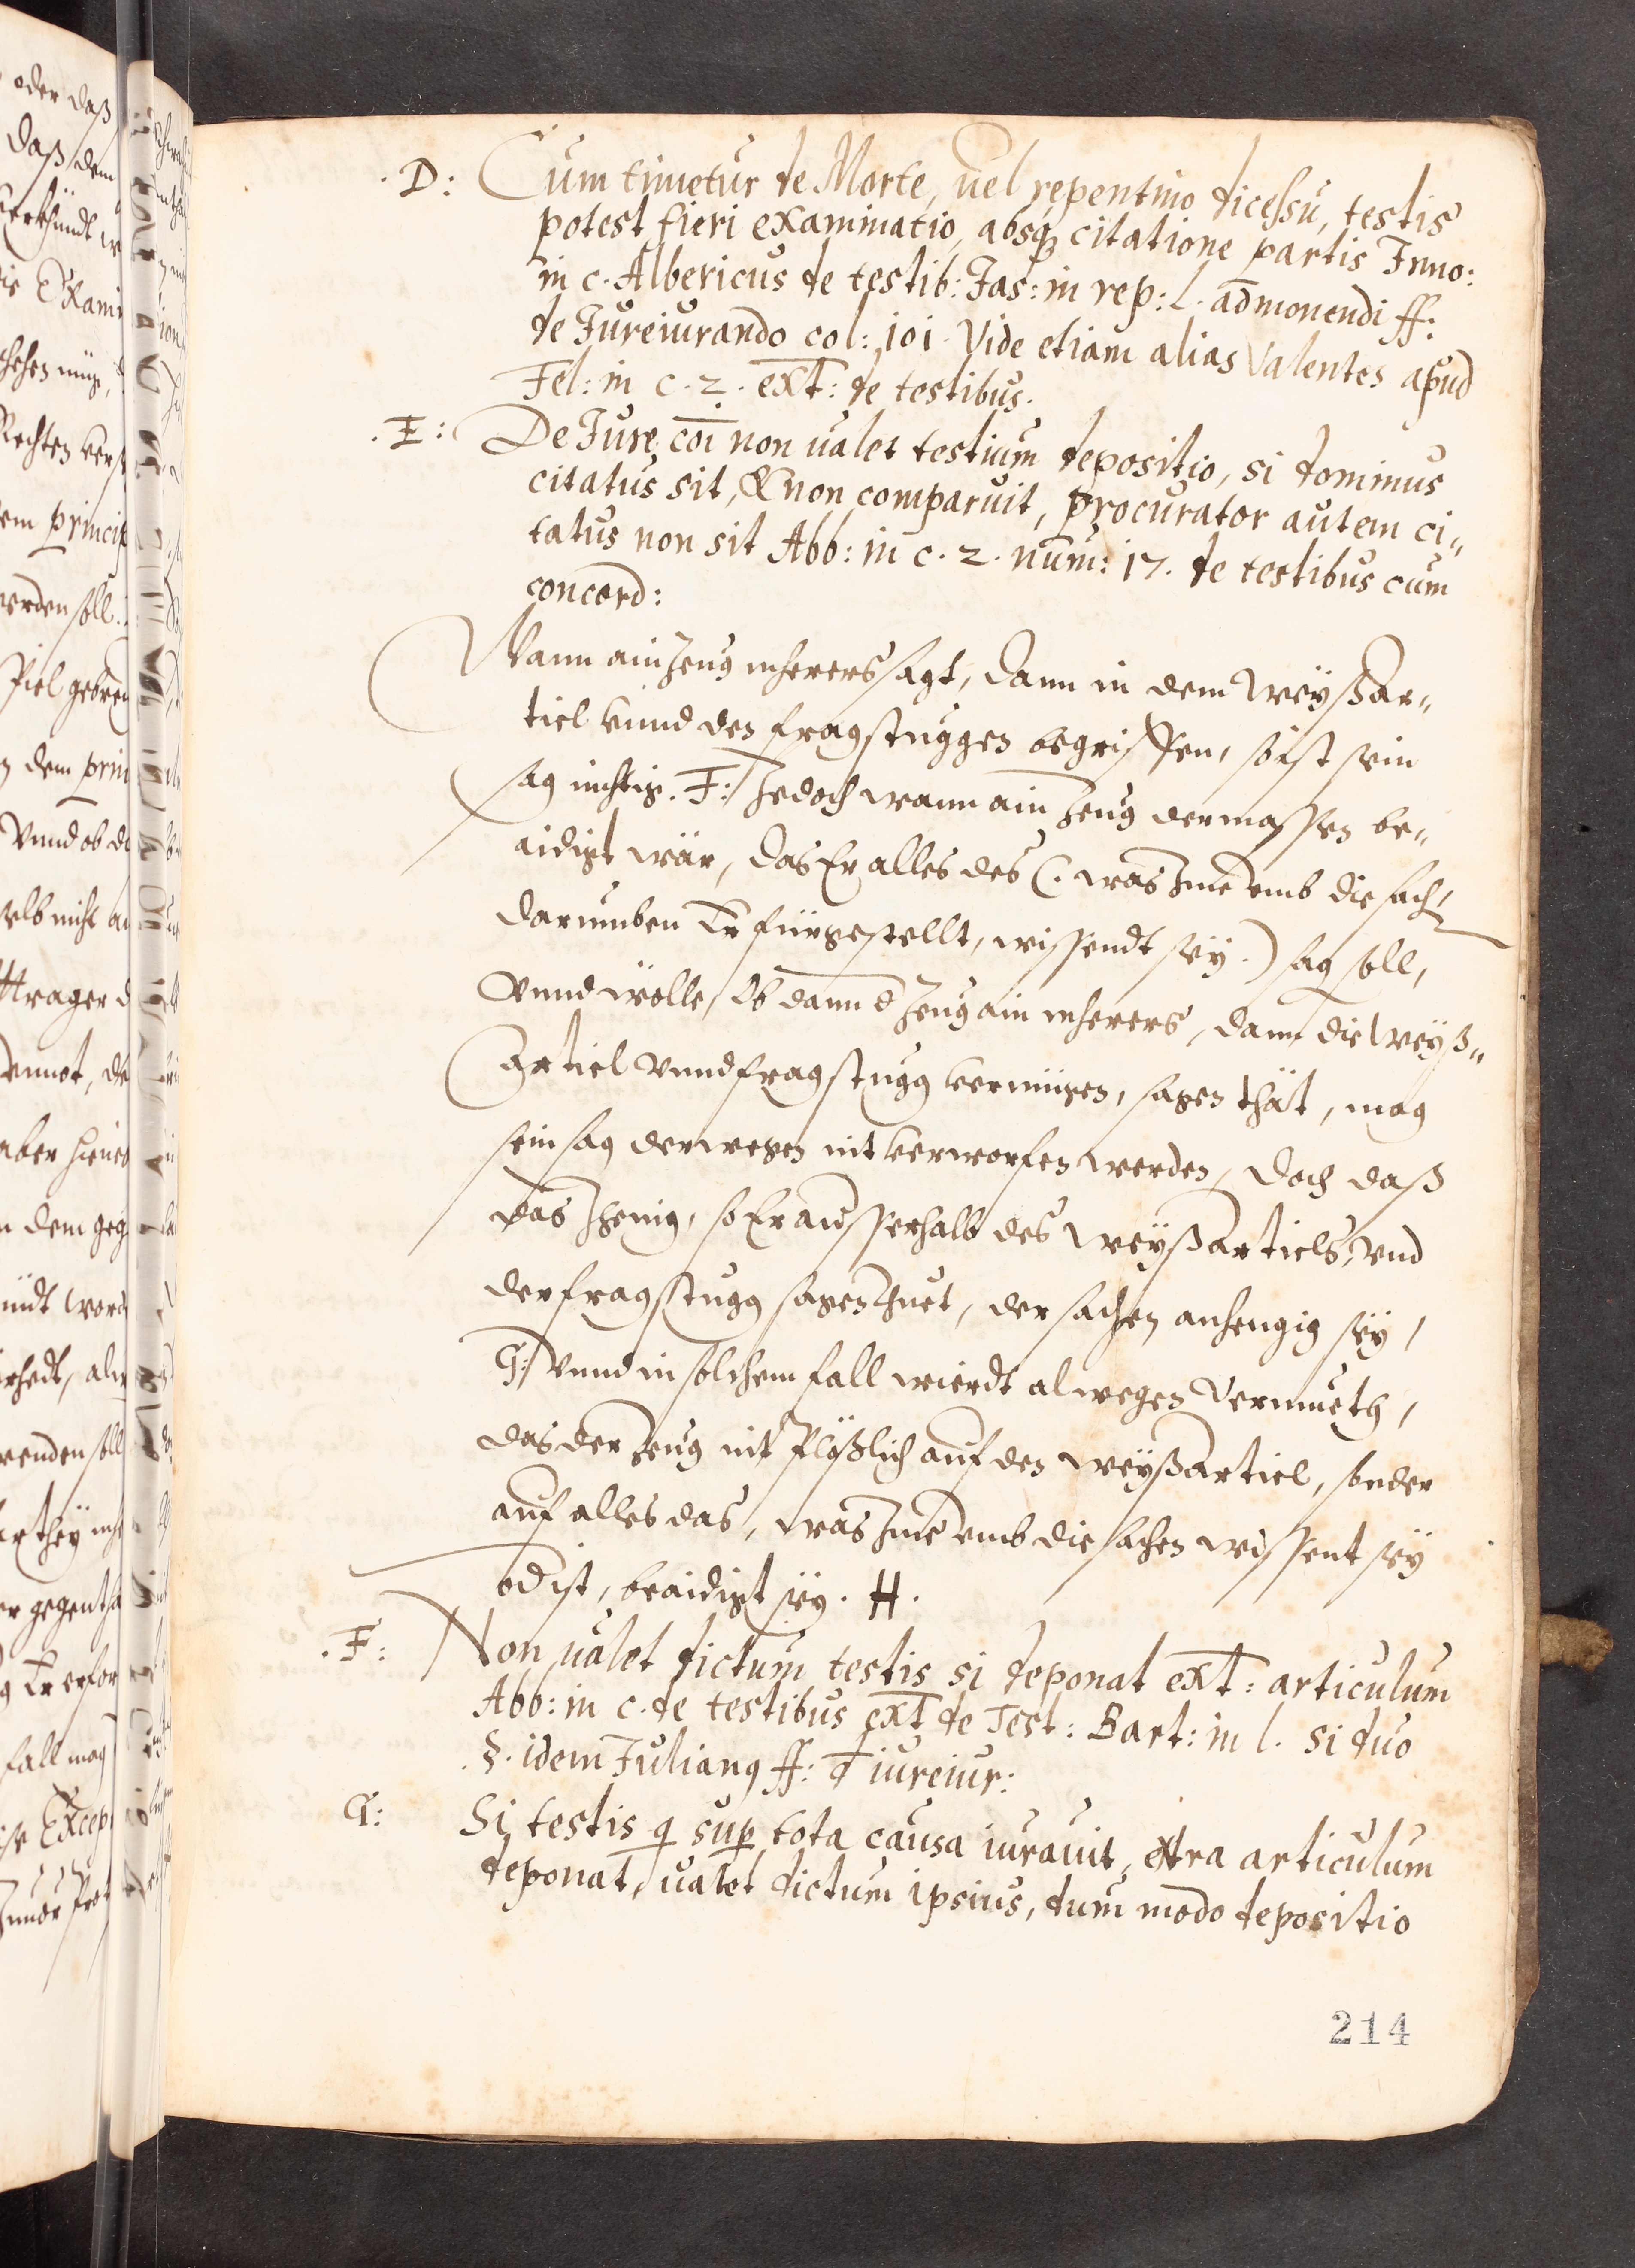 .D: Cum timetur de Morte, uel repentino dicessu, testis
potest fieri examinatio, absq; citatione partis Inno:
in c. Albericus de testib: Jas: in rep: l. admonendi ff:
de Jureiurando col: 101. Vide etiam alias Valentes apud
Fel: in c. 2. ext: de testibus.
.E: De Jure coi non ualet testium depositio, si dominus
citatus sit, & non comparuit, procurator autem ci„
tatus non sit Abb: in c. 2. num: 17. de testibus cum
concord:
Wann ain Zeug mherers sagt, dann in dem Weyßar„
ticl vnnd den fragstuggen begriffen, so ist sein
sag nichtig. F: Jedoch wann ain Zeug dermassen be„
aidigt wär, das Er alles des (: was Ime vmb die sach,
darumben Er fürgestellt, wissendt sey.) sag soll,
vnnd wölle, Ob dann d Zeug ain mherers, dann die Weyß„
Articl vnnd fragstugg vermügen, sagen thät, mag
sein sag derwegen nit verworfen werden, doch daß
das Jhenig, so Er ausserhalb des Weyßarticls, vnd
der fragstugg sagen thuet, der sachen anhengig sey,
G: vnnd in solchem fall wierdt alwegen Vermueth,
das der Zeug nit Plößlich auf den Weyßarticl, sonder
auf alles das, was Ime vmb die sachen wissent sey
od ist, beaidigt sey. H.
.F: Non ualet dictum testis si deponat ext: articulum
Abb: in c. de testibus ext de Test: Bart: in l. si duo
.§. idem Julianq ff: d iureiur:
G: Si testis q sup tota causa iurauit, extra articulum
deponat, ualet dictum ipsius, dum modo depositio
214